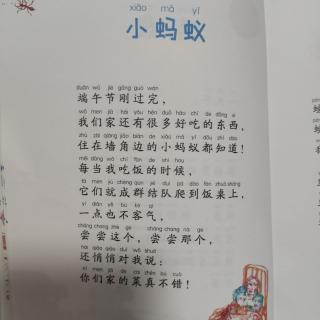 xiǎo mǎ yǐ
小蚂蚁
duān wǔ jié gāng guò wán
端午节刚过完，
wǒ men jiā hái yǒu hěn duō hǎo chī de dōng xi
我们家还有很多好吃的东西，
zhù zài qiáng jiǎo biān de xiǎo mǎ yǐ dōu zhī dào
住在墙角边的小蚂蚁都知道！
měi dāng wǒ chī fàn de shí hou
每当我吃饭的时候，
tā men jiù chéng qún jié duì pá dào fàn zhuō shàng
它们就成群结队爬到饭桌上，
yì diǎn yě bú kè qi
一点也不客气，
cháng chang zhè ge cháng chang nà ge
尝尝这个，尝尝那个，
hái qiāo qiāo duì wǒ shuō
还悄悄对我说：
nǐ men jiā de cài zhēn bú cuò
你们家的菜真不错！